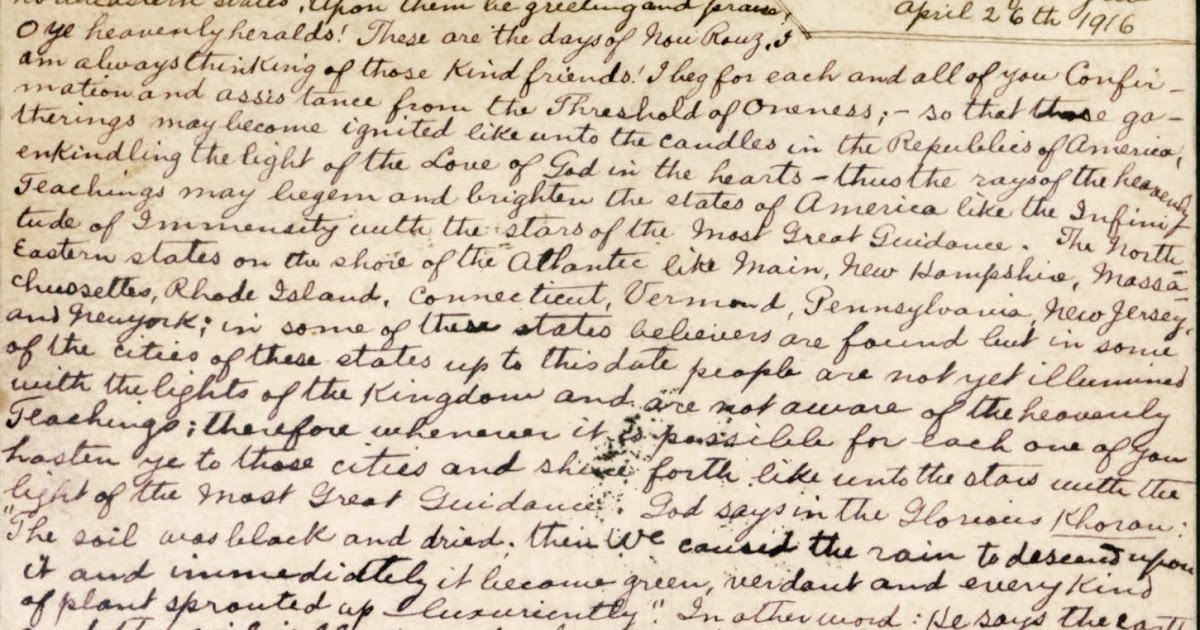 northeastern states. Upon them be greeting and praise!
April 26th 1916
O ye heavenly heralds! These are the days of Nou Rouz. I
am always thinking of those kind friends! I beg for each and all of you Confir-
mation and assistance from the Threshold of Oneness; - so that those ga-
therings may become ignited like unto the candles in the Republics of America,
enkindling the light of the Love of God in the hearts - thus the rays of the heavenly
Teachings may begem and brighten the states of America like the Infini
tude of Immensity with the stars of the Most Great Guidance. The North
Eastern states on the shore of the Atlantic like Main, New Hampshire, Massa-
chussettes, Rhode Island, Connecticut, Vermond, Pennsylvania, New Jersey,
and Newyork; in some of these states believers are found but in some
of the cities of these states up to this date people are not yet illumined
with the lights of the Kingdom and are not aware of the heavenly
Teachings; therefore whenever it is possible for each one of you
hasten ye to those cities and shine forth like unto the stars with the
light of the Most Great Guidance. God says in the Glorious Khoran:
"The soil was black and dried. then We caused the rain to descend upon
it and immediately it became green, verdant and every kind
of plant sprouted up luxuriently." In other word: He says the earth